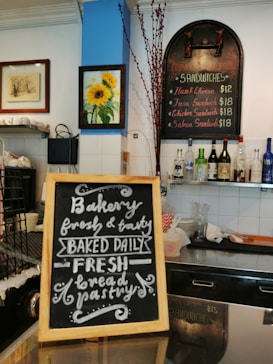 SANDWICHES
Ham & Cheese $12
Tuna Sandwich $18
Chicken Sandwich $18
Salmon Sandwich $18
Bakery
fresh & tasty
BAKED DAILY
FRESH
bread
pastry